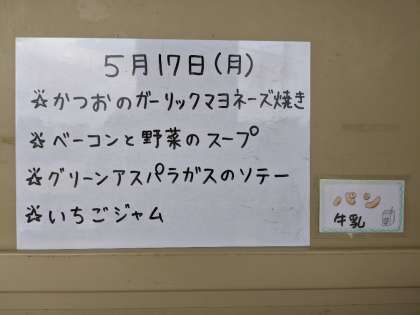 5月17日(月)
☆かつおのガーリックマヨネーズ焼き
☆ベーコンと野菜のスープ
☆グリーンアスパラガスのソテー
☆いちごジャム
パン
牛乳